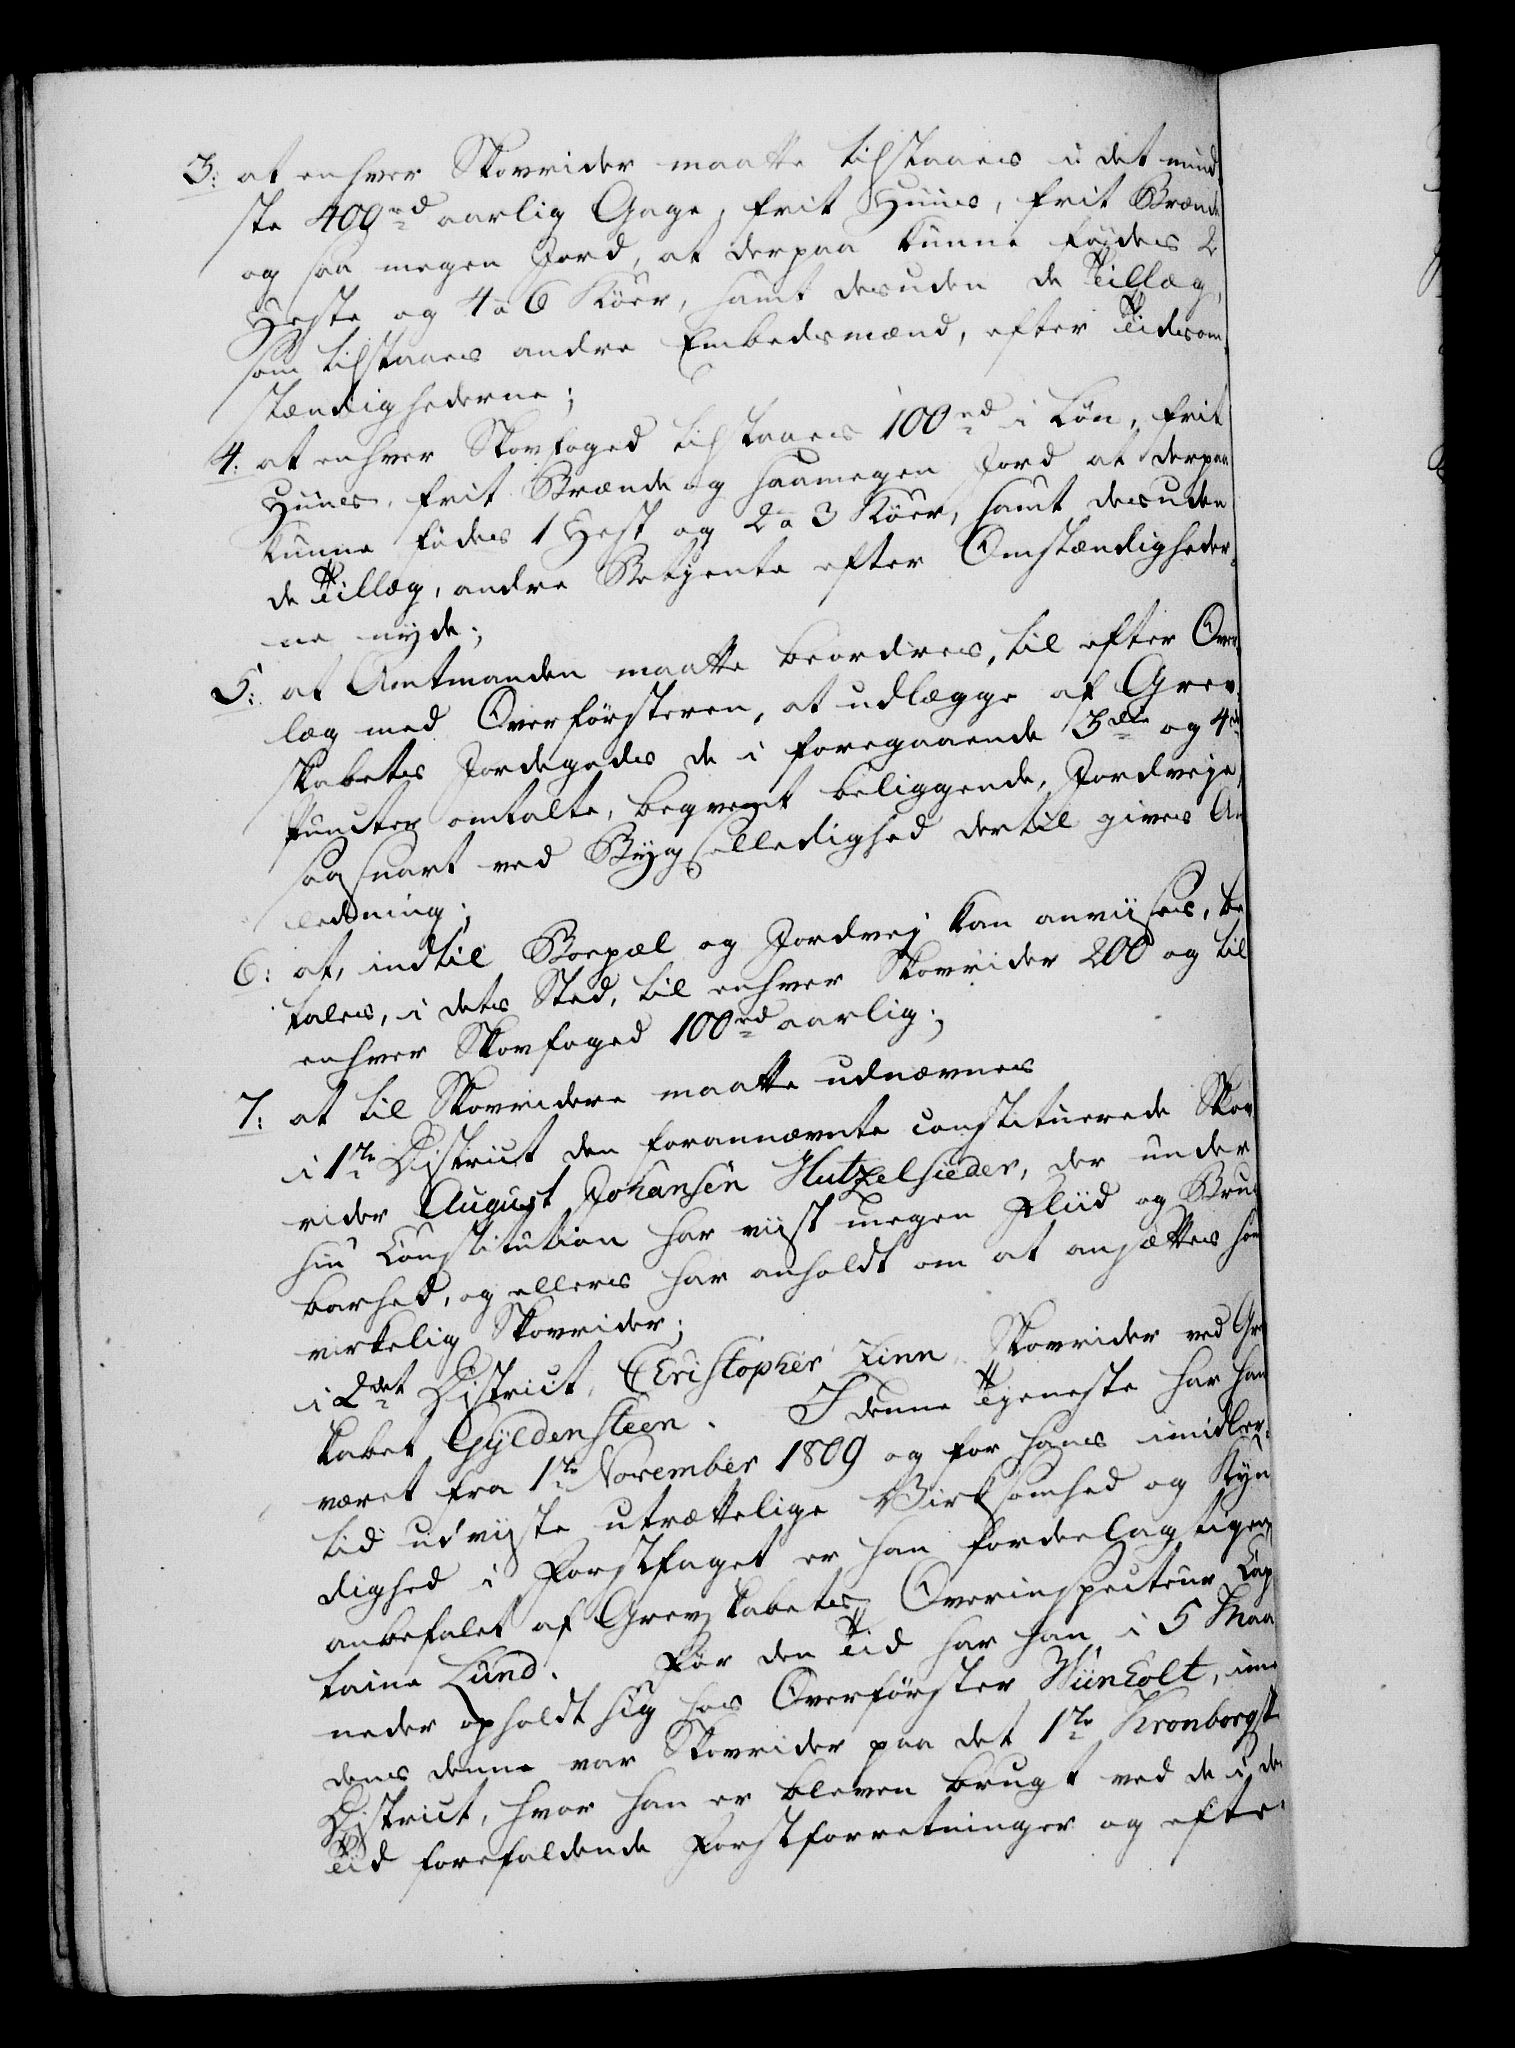 3: at enhver Skovrider maatte tilstaaes i det mind
ste 400rd aarlig Gage, frit Huus, frit Brænde
og saa megen Jord, at derpaa kunne fødes 2
Heste og 4 a 6 Køer, samt desuden de Tillæg,
som tilstaaes andre Embedsmænd, efter Tidsom-
stændighederne;
4: at enhver Skovfoged tilstaaes 100rd i Løn, frit
Huus, frit Brænde og saamegen Jord at derpaa
kunne fødes 1 Hest og 2 a 3 Køer, samt desuden
de Tillæg, andre Betjente efter Omstændigheder-
ne nyde;
5: at Amtmanden maatte beordres, til efter Over
læg med Overførsteren, at udlægge af Grev-
skabets Jordegods de i foregaaende 3die og 4de
Puncter omtalte, beqvemt beliggende, Jordveje,
saasnart ved Bygselledighed dertil gives An
ledning;
6: at, indtil Boepæl og Jordvej kan anviises, be
tales, i dets Sted, til enhver Skovrider 200 og til
enhver Skovfoged 100rd aarlig;
7: at til Skovridere maatte udnævnes
i 1te District den forannævnte constituerede Skov
rider August Johansen Hutzelsieder, der under
sin Constitution har viist megen Fliid og Brug
barhed, og ellers har anholdt om at ansættes som
virkelig Skovrider;
i 2det District, Christopher Zinn, Skovrider ved Grev
skabet Gyldensteen. I denne Tjeneste har han
været fra 1te November 1809 og for hans imidler-
tid udviiste utrættelige Virksomhed og Kyn
dighed i Forstfaget er han fordeelagtigen
anbefalet af Grevskabets Overinspecteur Cap
taine Lund. Før den Tid har han i 5 Maa
neder opholdt sig hos Overførster Wiinholt, ime
dens denne var Skovrider paa det 1te Kronborgske
District, hvor han er bleven brugt ved de i den
Tid forefaldende Forstforretninger og efter